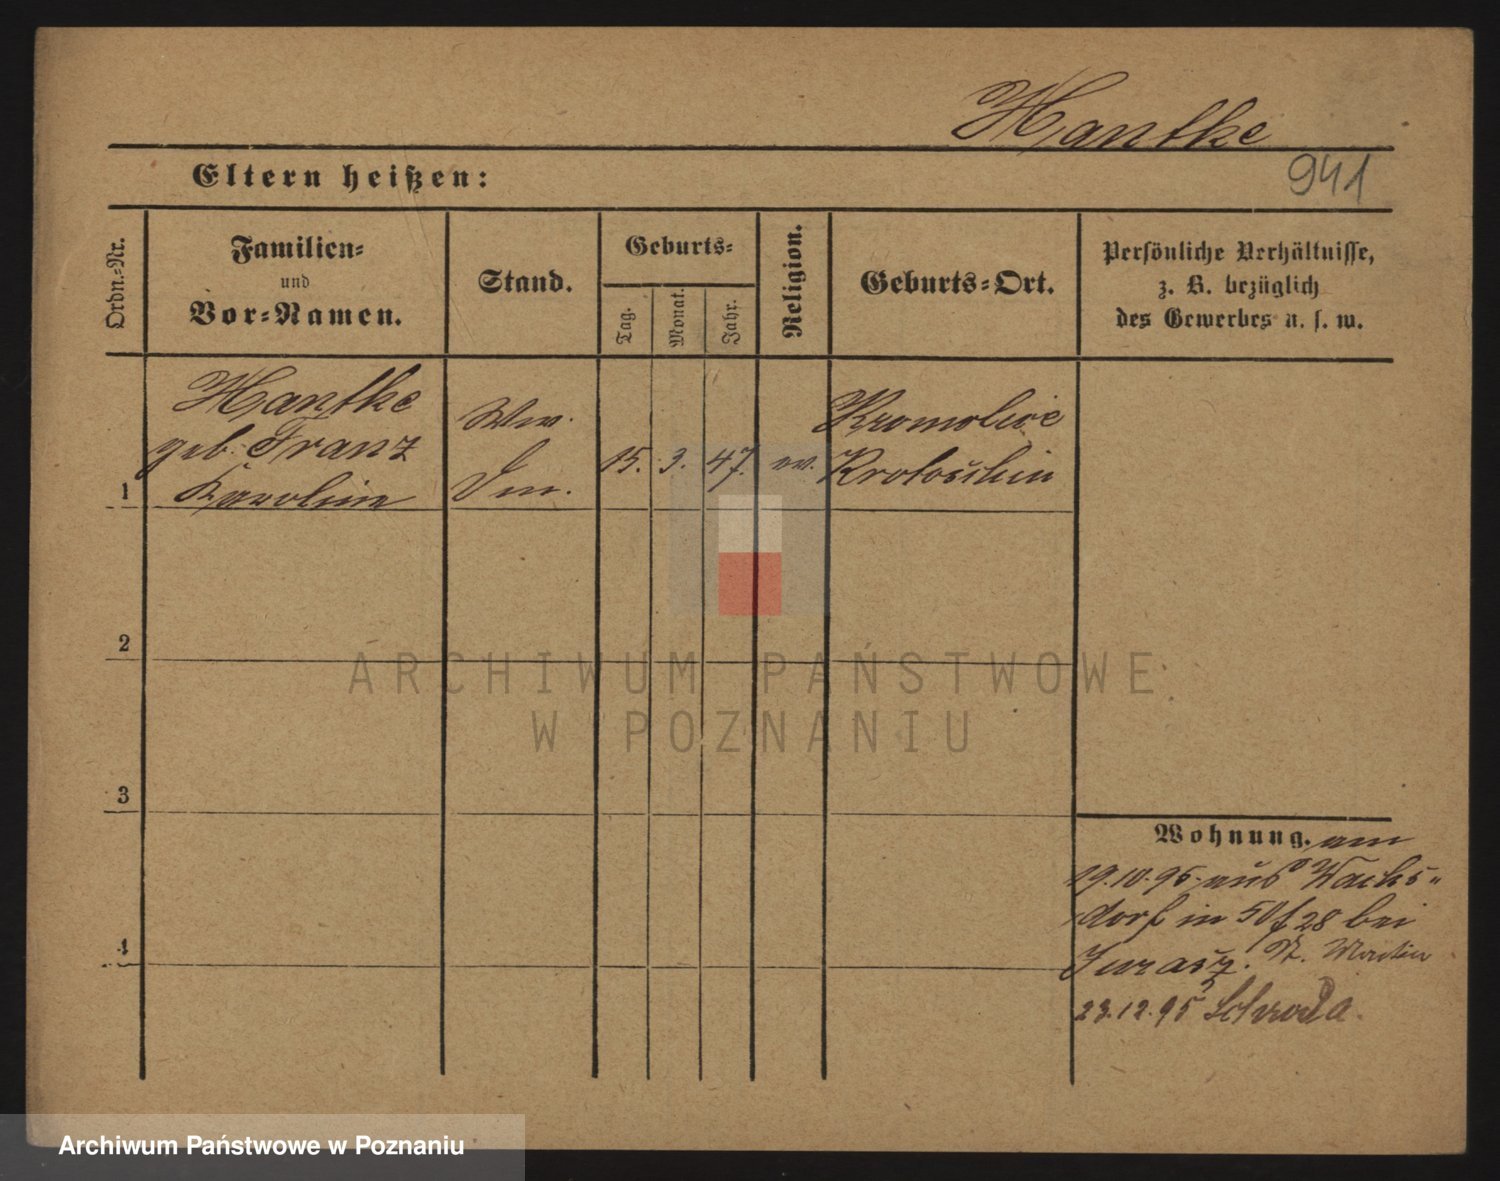 Hantke
Eltern heißen:
941
Ordn.-Nr.
Familien-
und
Vor-Namen.
Stand.
Geburts-
Tag.
Monat.
Jahr.
Religion.
Geburts-Ort.
Persönliche Verhältnisse,
z. B. bezüglich
des Gewerbes u. s. w.
Hantke
geb. Franz
Karoline
Ww.
15. 3. 47. ev.
Kromolice
Krotoschin
1
2
3
4
ARCHIWUM PAŃSTWOWE
W POZNANIU
Wohnung. am
29.10.95 aus Wachs-
dorf in 50/28 bei
Jurasz. St. Martin
23.12.95 Schroda.
Archiwum Państwowe w Poznaniu